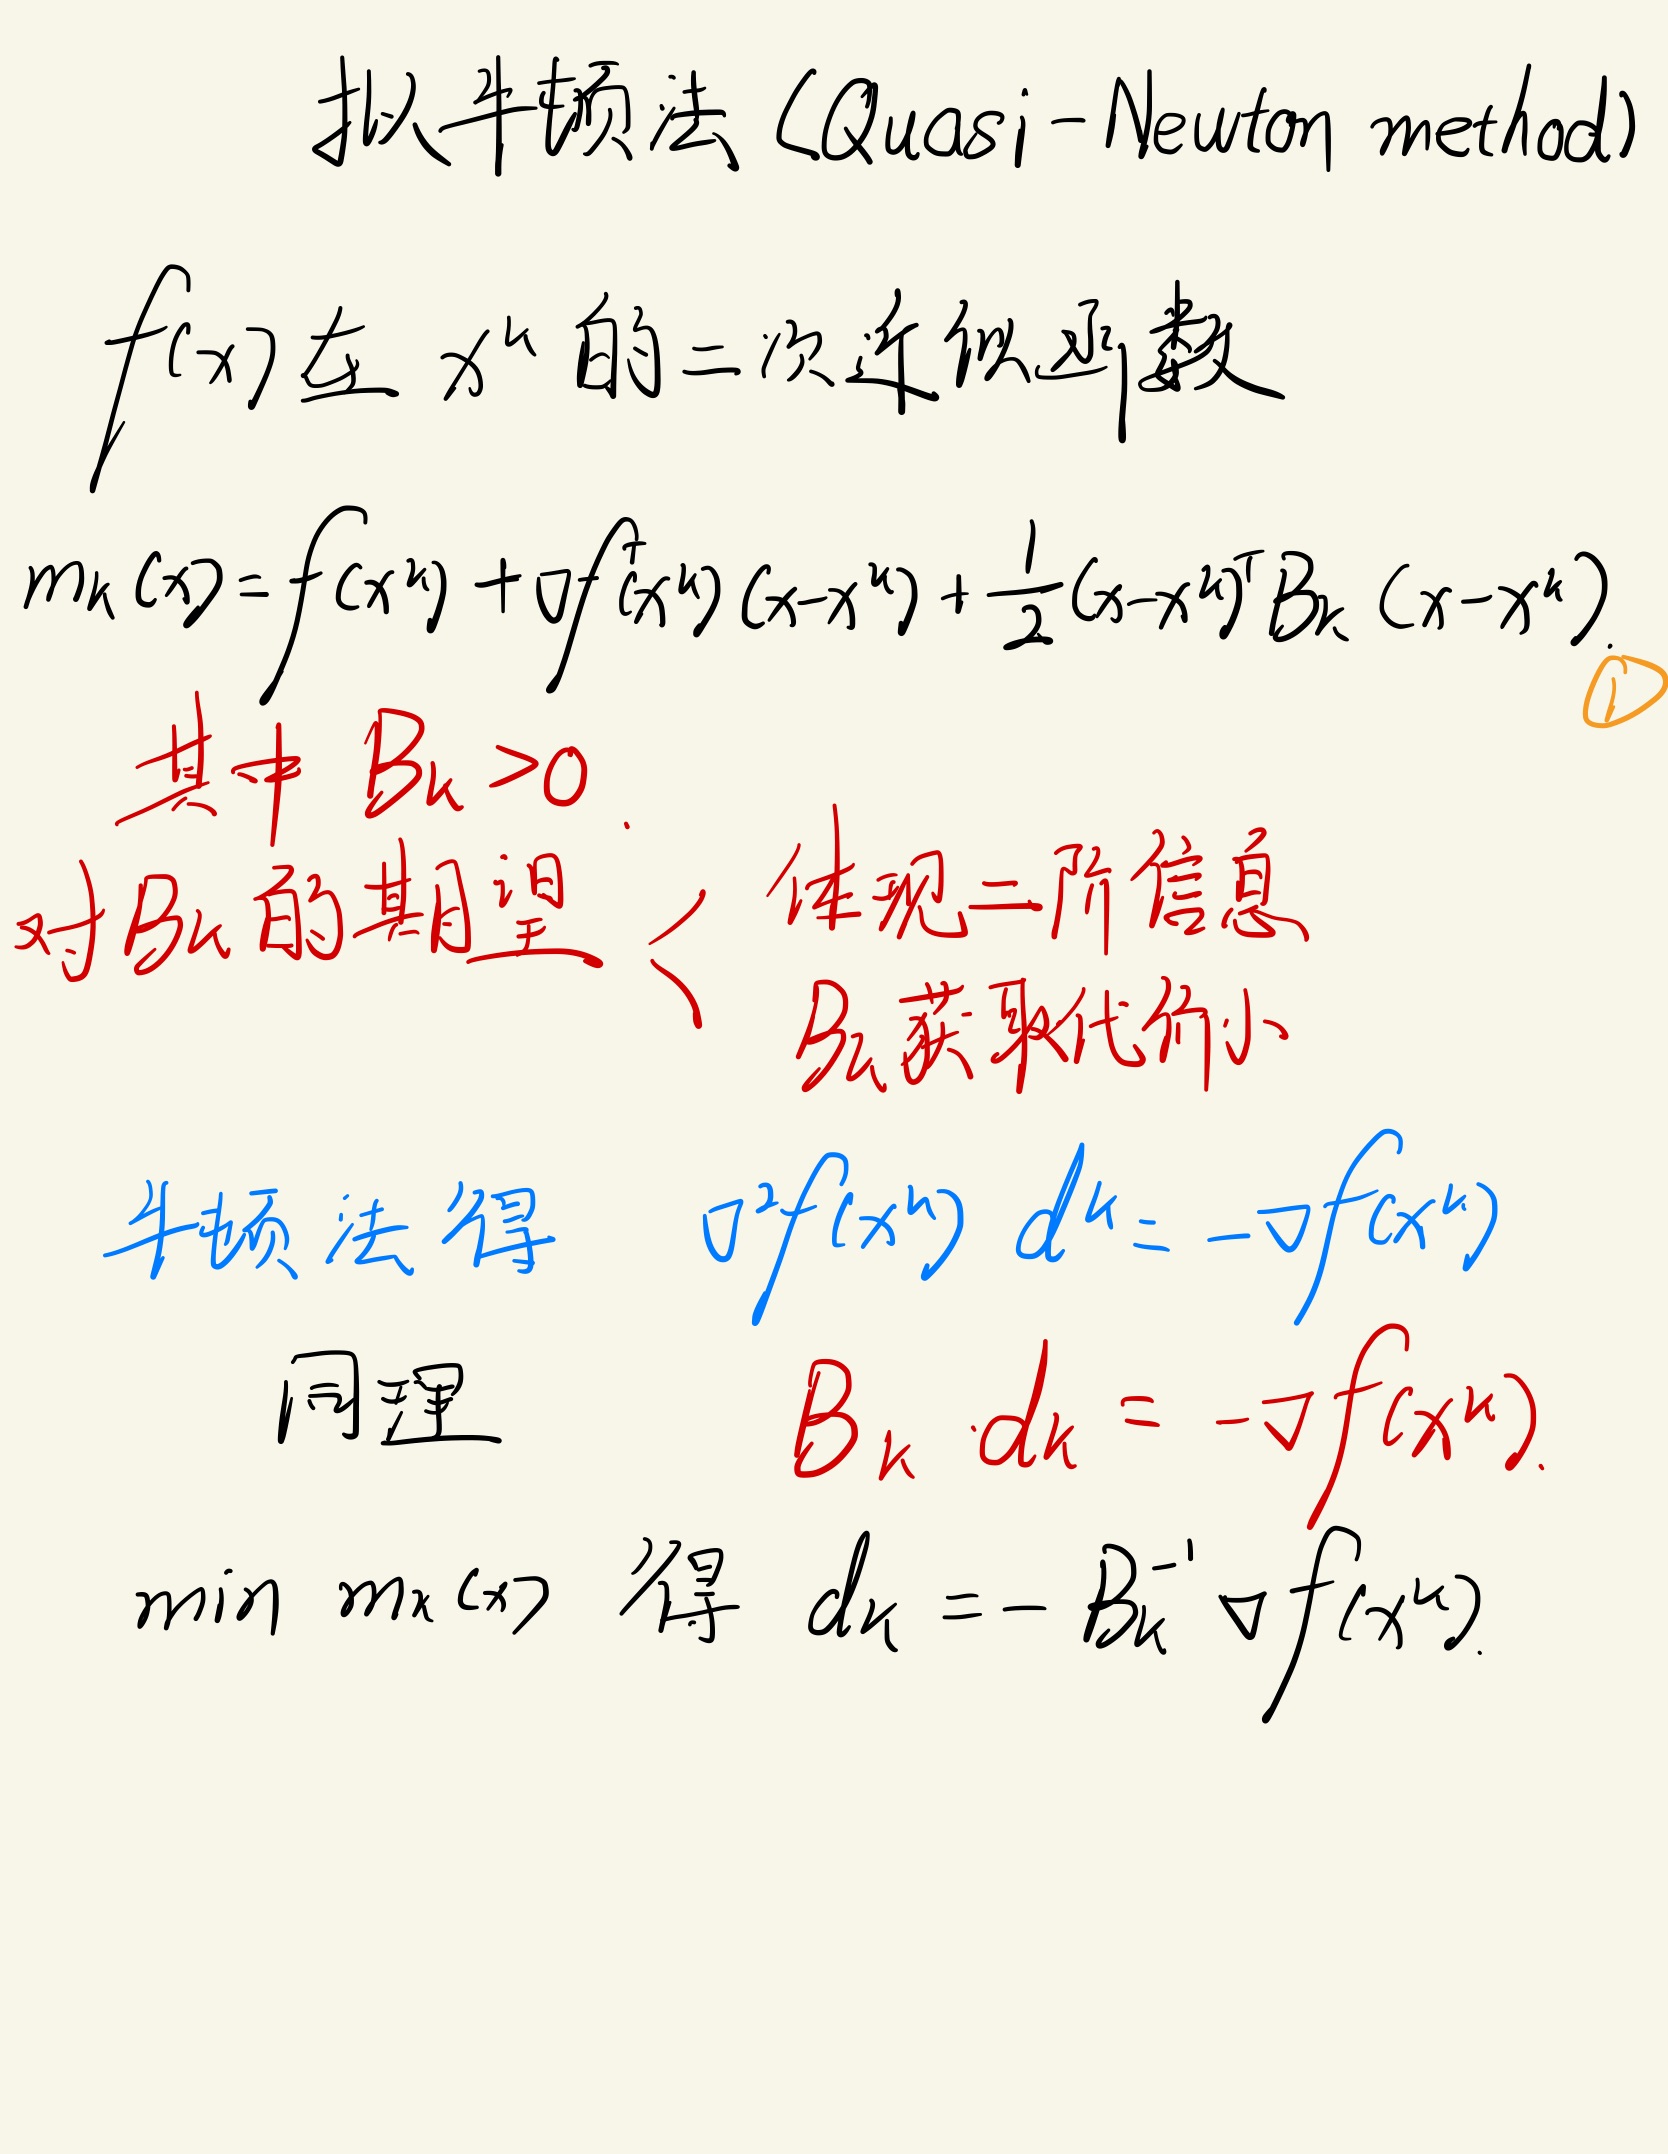 拟牛顿法 (Quasi-Newton method)
f(x) 在 x^k 的二次近似函数
m_k(x) = f(x^k) + ∇f^T(x^k)(x-x^k) + 1/2 (x-x^k)^T B_k (x-x^k).
①
其中 B_k > 0.
对B_k的期望 < 体现二阶信息
B_k获取代价小
牛顿法得 ∇²f(x^k) d^k = -∇f(x^k)
同理 B_k · d_k = -∇f(x^k).
min m_k(x) 得 d_k = - B_k^{-1} ∇f(x^k).